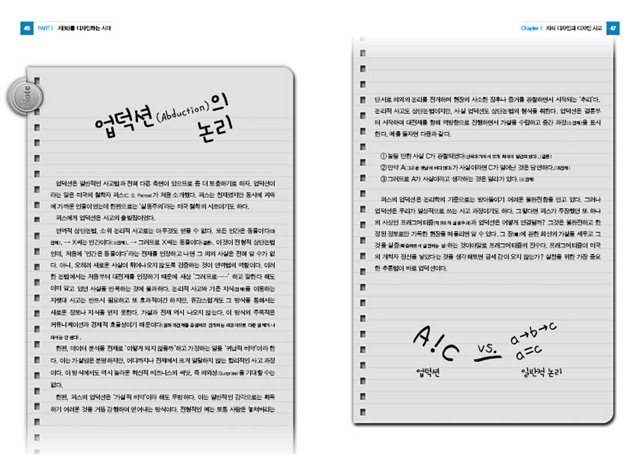 46 PART I 지(知)를 디자인하는 시대
Note
업덕션(Abduction)의
논리
업덕션은 일반적인 사고법과 전혀 다른 측면이 있으므로 좀 더 보충하기로 하자. 업덕션이
라는 말은 미국의 철학자 퍼스(C. S. Peirce)가 처음 소개했다. 퍼스는 천재였지만 동시에 괴짜
에 가까운 인물이었는데 한편으로는 '실용주의'라는 미국 철학의 시조이기도 하다.
퍼스에게 업덕션은 사고의 출발점이었다.
연역적 삼단논법, 소위 논리적 사고로는 아무것도 얻을 수 없다. 모든 인간은 동물이다
→ X씨는 인간이다 → 그러므로 X씨는 동물이다 이것이 전형적 삼단논법
인데, 처음에 '인간은 동물이다'라는 전제를 인정하고 나면 그 외의 사실은 전혀 알 수가 없
다. 아니, 오히려 새로운 사실이 튀어나오지 않도록 검증하는 것이 연역법의 역할이다. 이러
한 논법에서는 처음부터 대전제를 인정하기 때문에 새삼 '그러므로……' 하고 말한다 해도
이미 알고 있던 사실을 반복하는 것에 불과하다. 논리적 사고와 기존 지식을 이용하는
자했던 사고는 반드시 필요하고 또 효과적이긴 하지만, 유감스럽게도 그 방식을 통해서는
새로운 정보나 지식을 얻지 못한다. 가설과 전제 역시 나오지 않는다. 이 방식의 주목적은
커뮤니케이션과 경제적 효율성이기 때문이다
한편, 데이터 분석을 전제로 '이렇게 되지 않을까'하고 가정하는 일을 '귀납적 비약'이라 한
다. 이는 가설임은 분명하지만, 어디까지나 전제에서 크게 일탈하지 않는 합리적인 사고 과정
이다. 이 방식에서도 역시 놀라운 혁신적 비즈니스의 씨앗, 즉 의외성(Surprise)을 기대할 수는
없다.
한편, 퍼스의 업덕션은 '가설적 비약'이라 해도 무방하다. 이는 일반적인 감각으로는 획득
하기 어려운 것을 거듭 감행하여 얻어내는 방식이다. 전형적인 예는 보통 사람은 놓쳐버리는
Chapter 1 지식 디자인과 디자인 사고 47
단서로 의외의 논리를 전개하며 현장의 사소한 징후나 증거를 관찰하면서 시작되는 '추리'다.
논리적 사고도 삼단논법이지만, 사실 업덕션도 삼단논법의 형식을 취한다. 업덕션은 결론부
터 시작하여 대전제를 향해 역방향으로 진행하면서 가설을 수립하고 중간 과정을 표시
한다. 예를 들자면 다음과 같다.
① 놀랄 만한 사실 C가 관찰되었다
② 만약 A가 사실이라면 C가 일어난 것은 당연하다.
③ 그러므로 A가 사실이라고 생각하는 것은 일리가 있다.
퍼스의 업덕션은 논리학의 기준으로는 받아들이기 어려운 불완전함을 안고 있다. 그러나
업덕션은 우리가 일상적으로 쓰는 사고 과정이기도 하다. 그렇다면 퍼스가 주장했던 또 하나
의 사상인 프래그머티즘과 업덕션은 어떻게 연결될까? 그것은 불완전하고 한
정된 정보로만 가득한 현장에 떠올리면 알 수 있다. 그 장에 관한 최선의 가설을 세우고 그
것을 실증하는 것이야말로 프래그머티즘의 진수다. 프래그머티즘이 미국
의 개척자 정신을 낳았다는 것을 생각해보면 금세 감이 오지 않는가? 실천을 위한 가장 중요
한 추론법이 바로 업덕션이다.
A!C vs. a→b→c
a=c
업덕션 일반적 논리